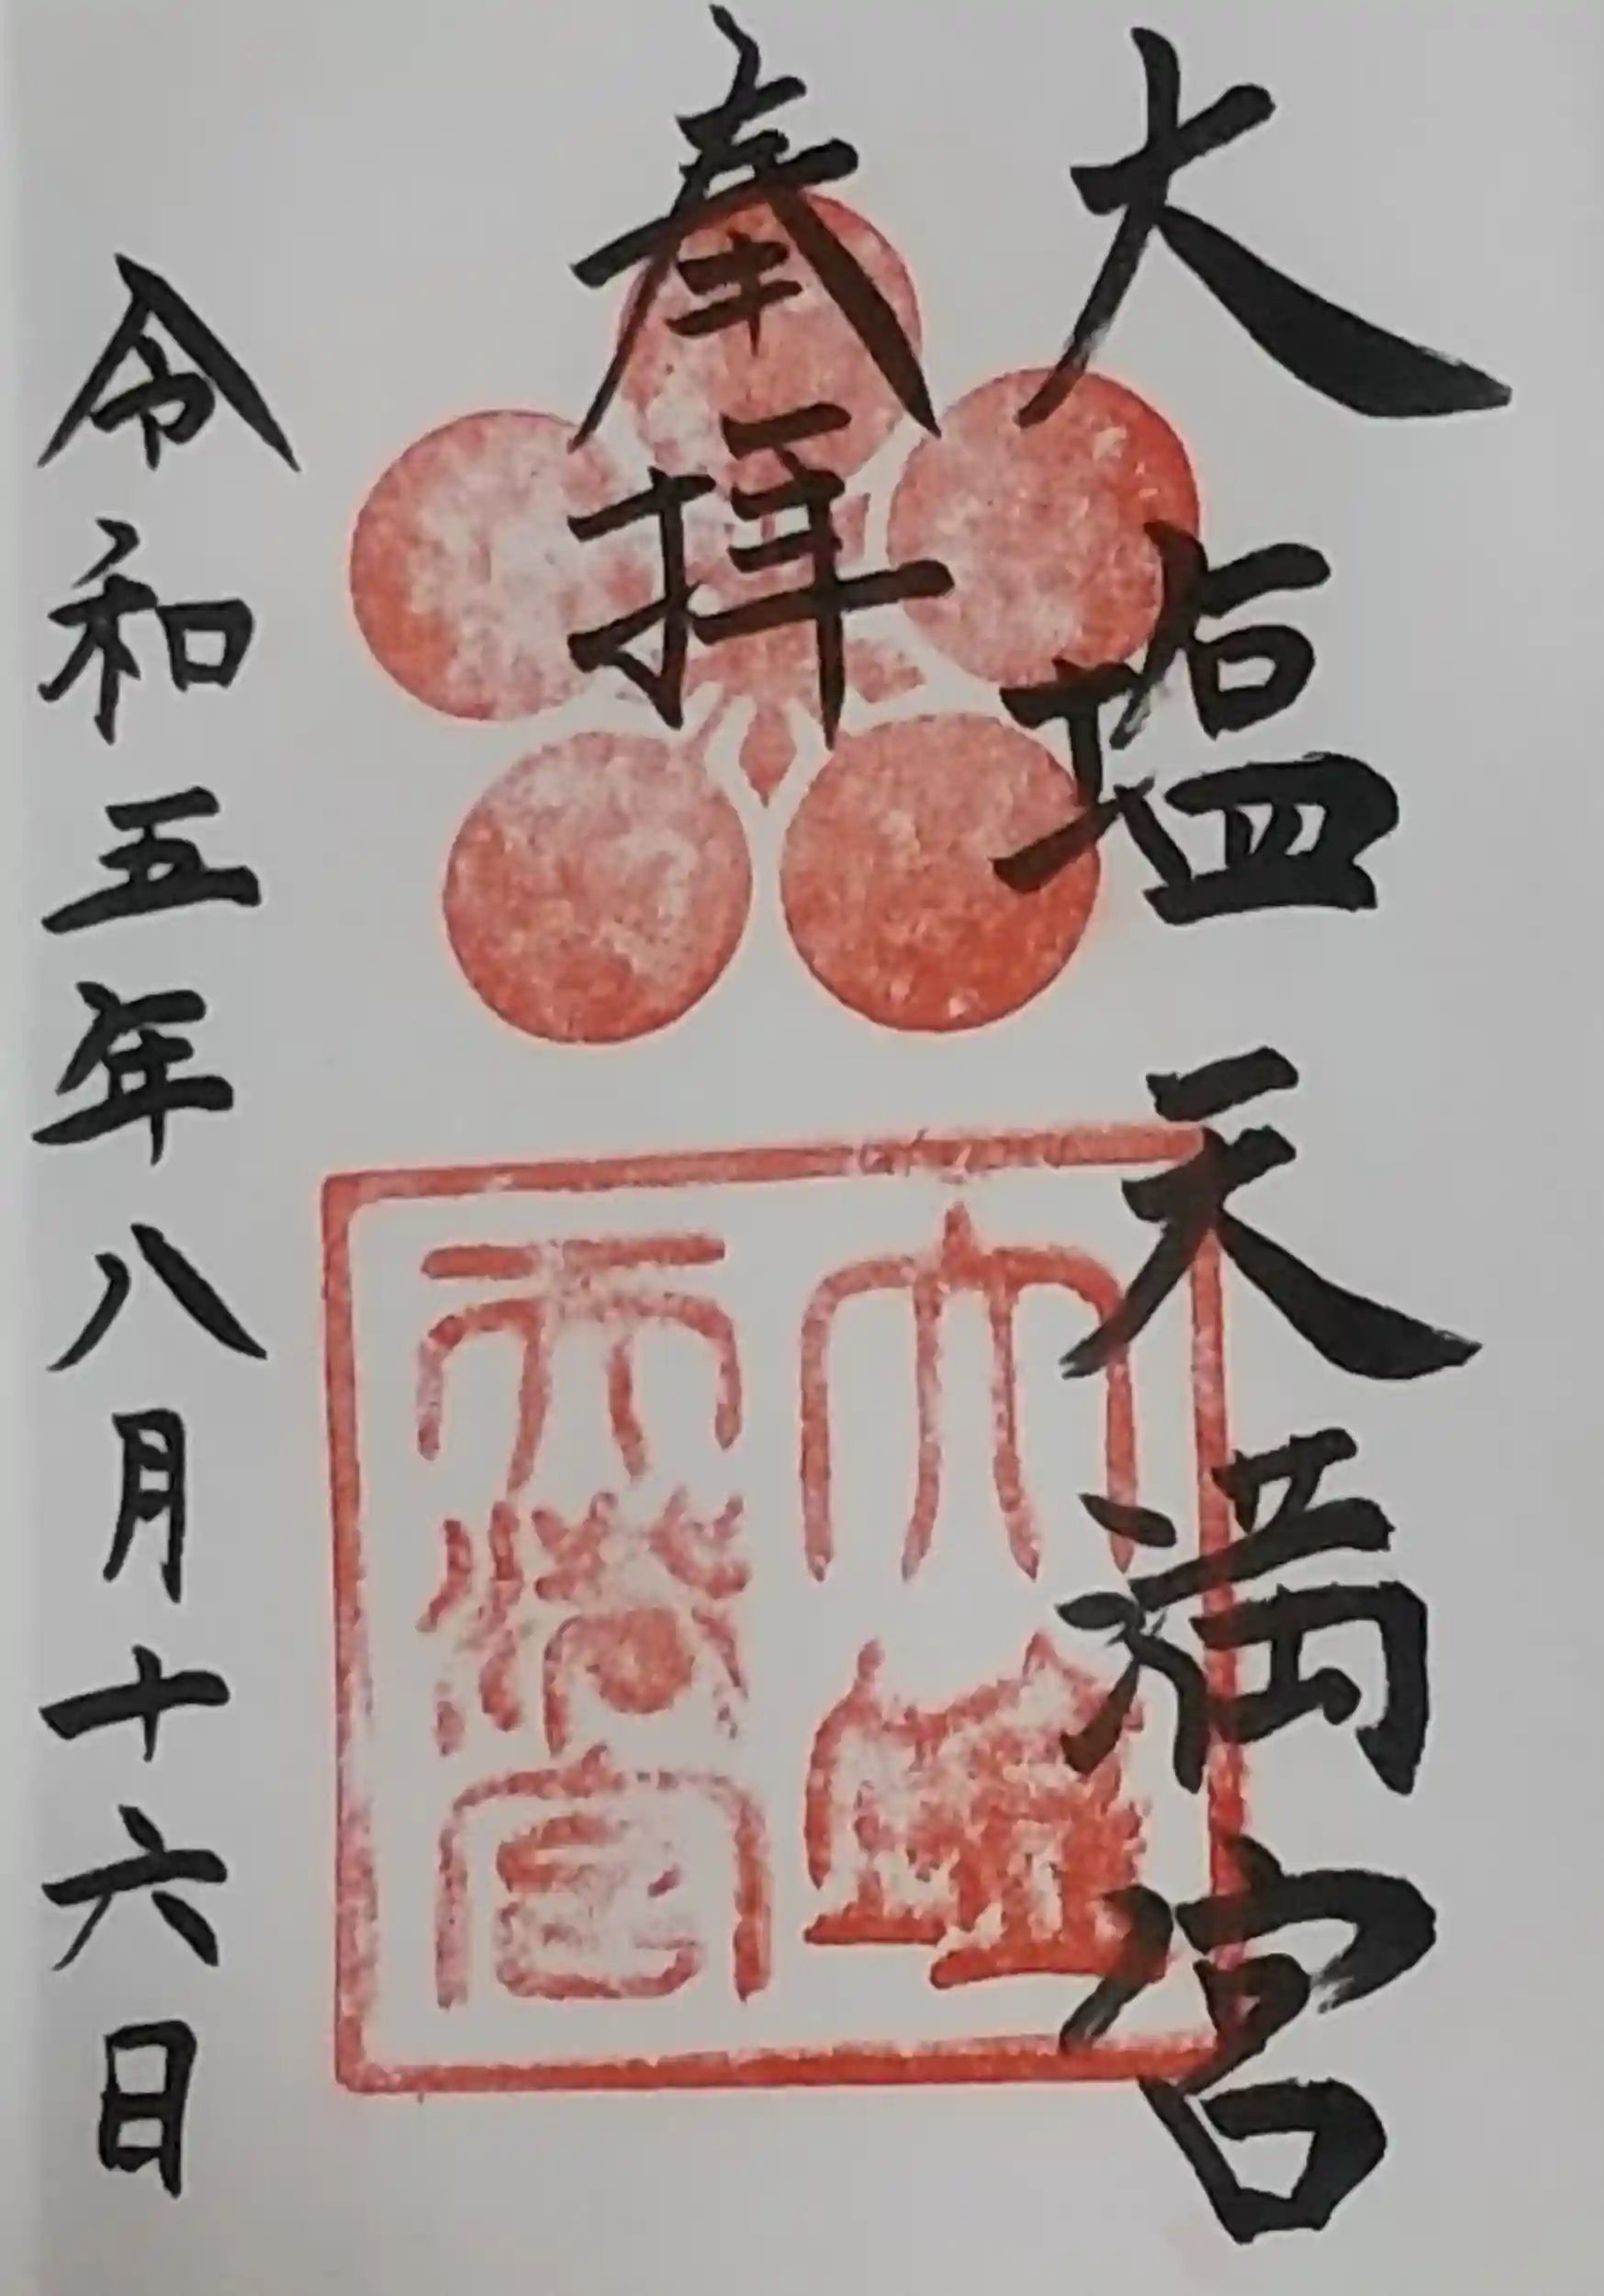 大塩天満宮
奉拝
大鹽天滿宮
令和五年八月十六日